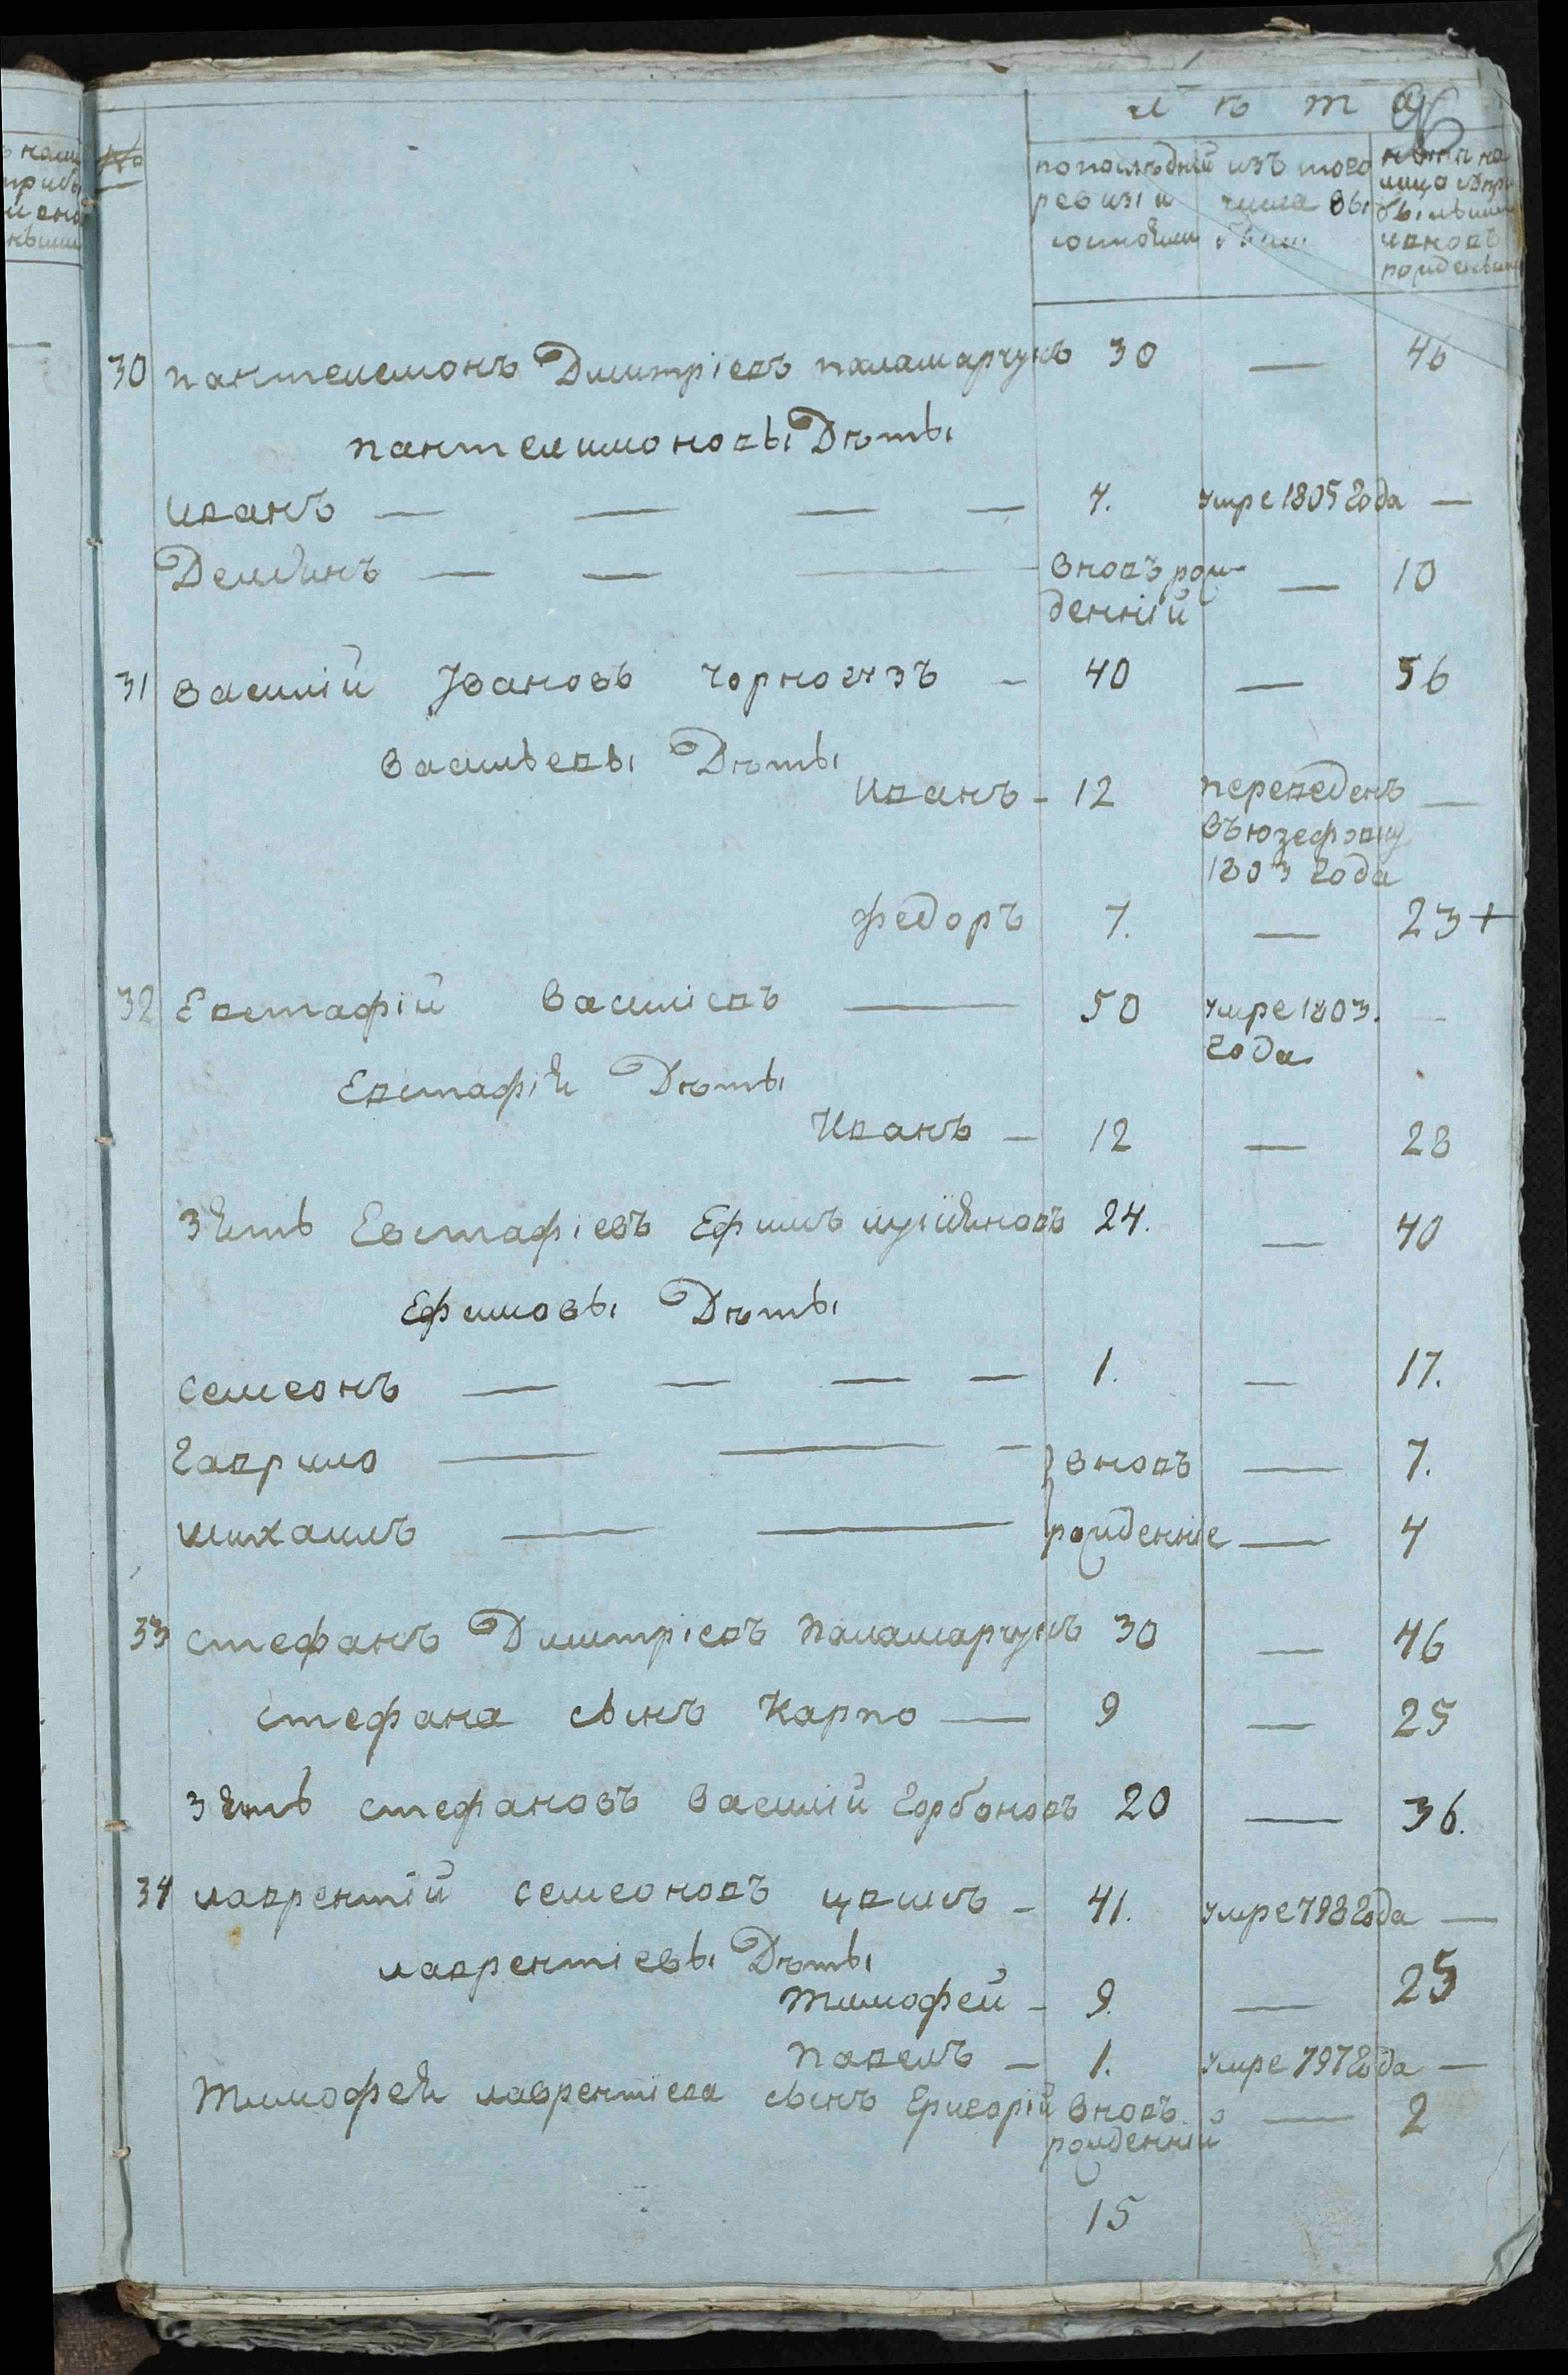 Лѣта
№
по последней ревизіи состояли
изъ того числа выбыли
нынѣ на лицо съ прибылыми и вновь рожденными
30 Пантелемонъ Дмитріевъ паламарчукъ 30 — 46
Пантелимоновы Дѣты
Иванъ — — — — 4. умре 1805 года —
Демиянъ — — — вновъ рож — 10
денній
31 Василій Івановъ Чорногузъ — 40 — 56
Васильевы Дѣты
Иванъ — 12 переведенъ —
въ юзефовку
1803 года
федоръ 7. — 23 +
32 Евстафій Василіевъ — 50 умре 1803. —
года
Евстафія Дѣты
Иванъ — 12 — 28
зять Евстафіевъ Ефимъ 24. — 40
Ефимовы Дѣты
семеонъ — — — — 1. — 17.
Гаврило — — — вновъ — 7.
михаилъ — — рожденніе — 4
33 стефанъ Дмитріевъ паламарчукъ 30 — 46
стефана сынъ Карпо — 9 — 25
зять стефановъ василій Горбоновъ 20 — 36.
34 лаврентій семеоновъ — 41. умре 798 года —
лаврентіевы Дѣты
тимофей — 9. — 25
павелъ — 1. умре 797 года —
тимофея лаврентіева сынъ Григорій вновъ — 2
рожденній
15